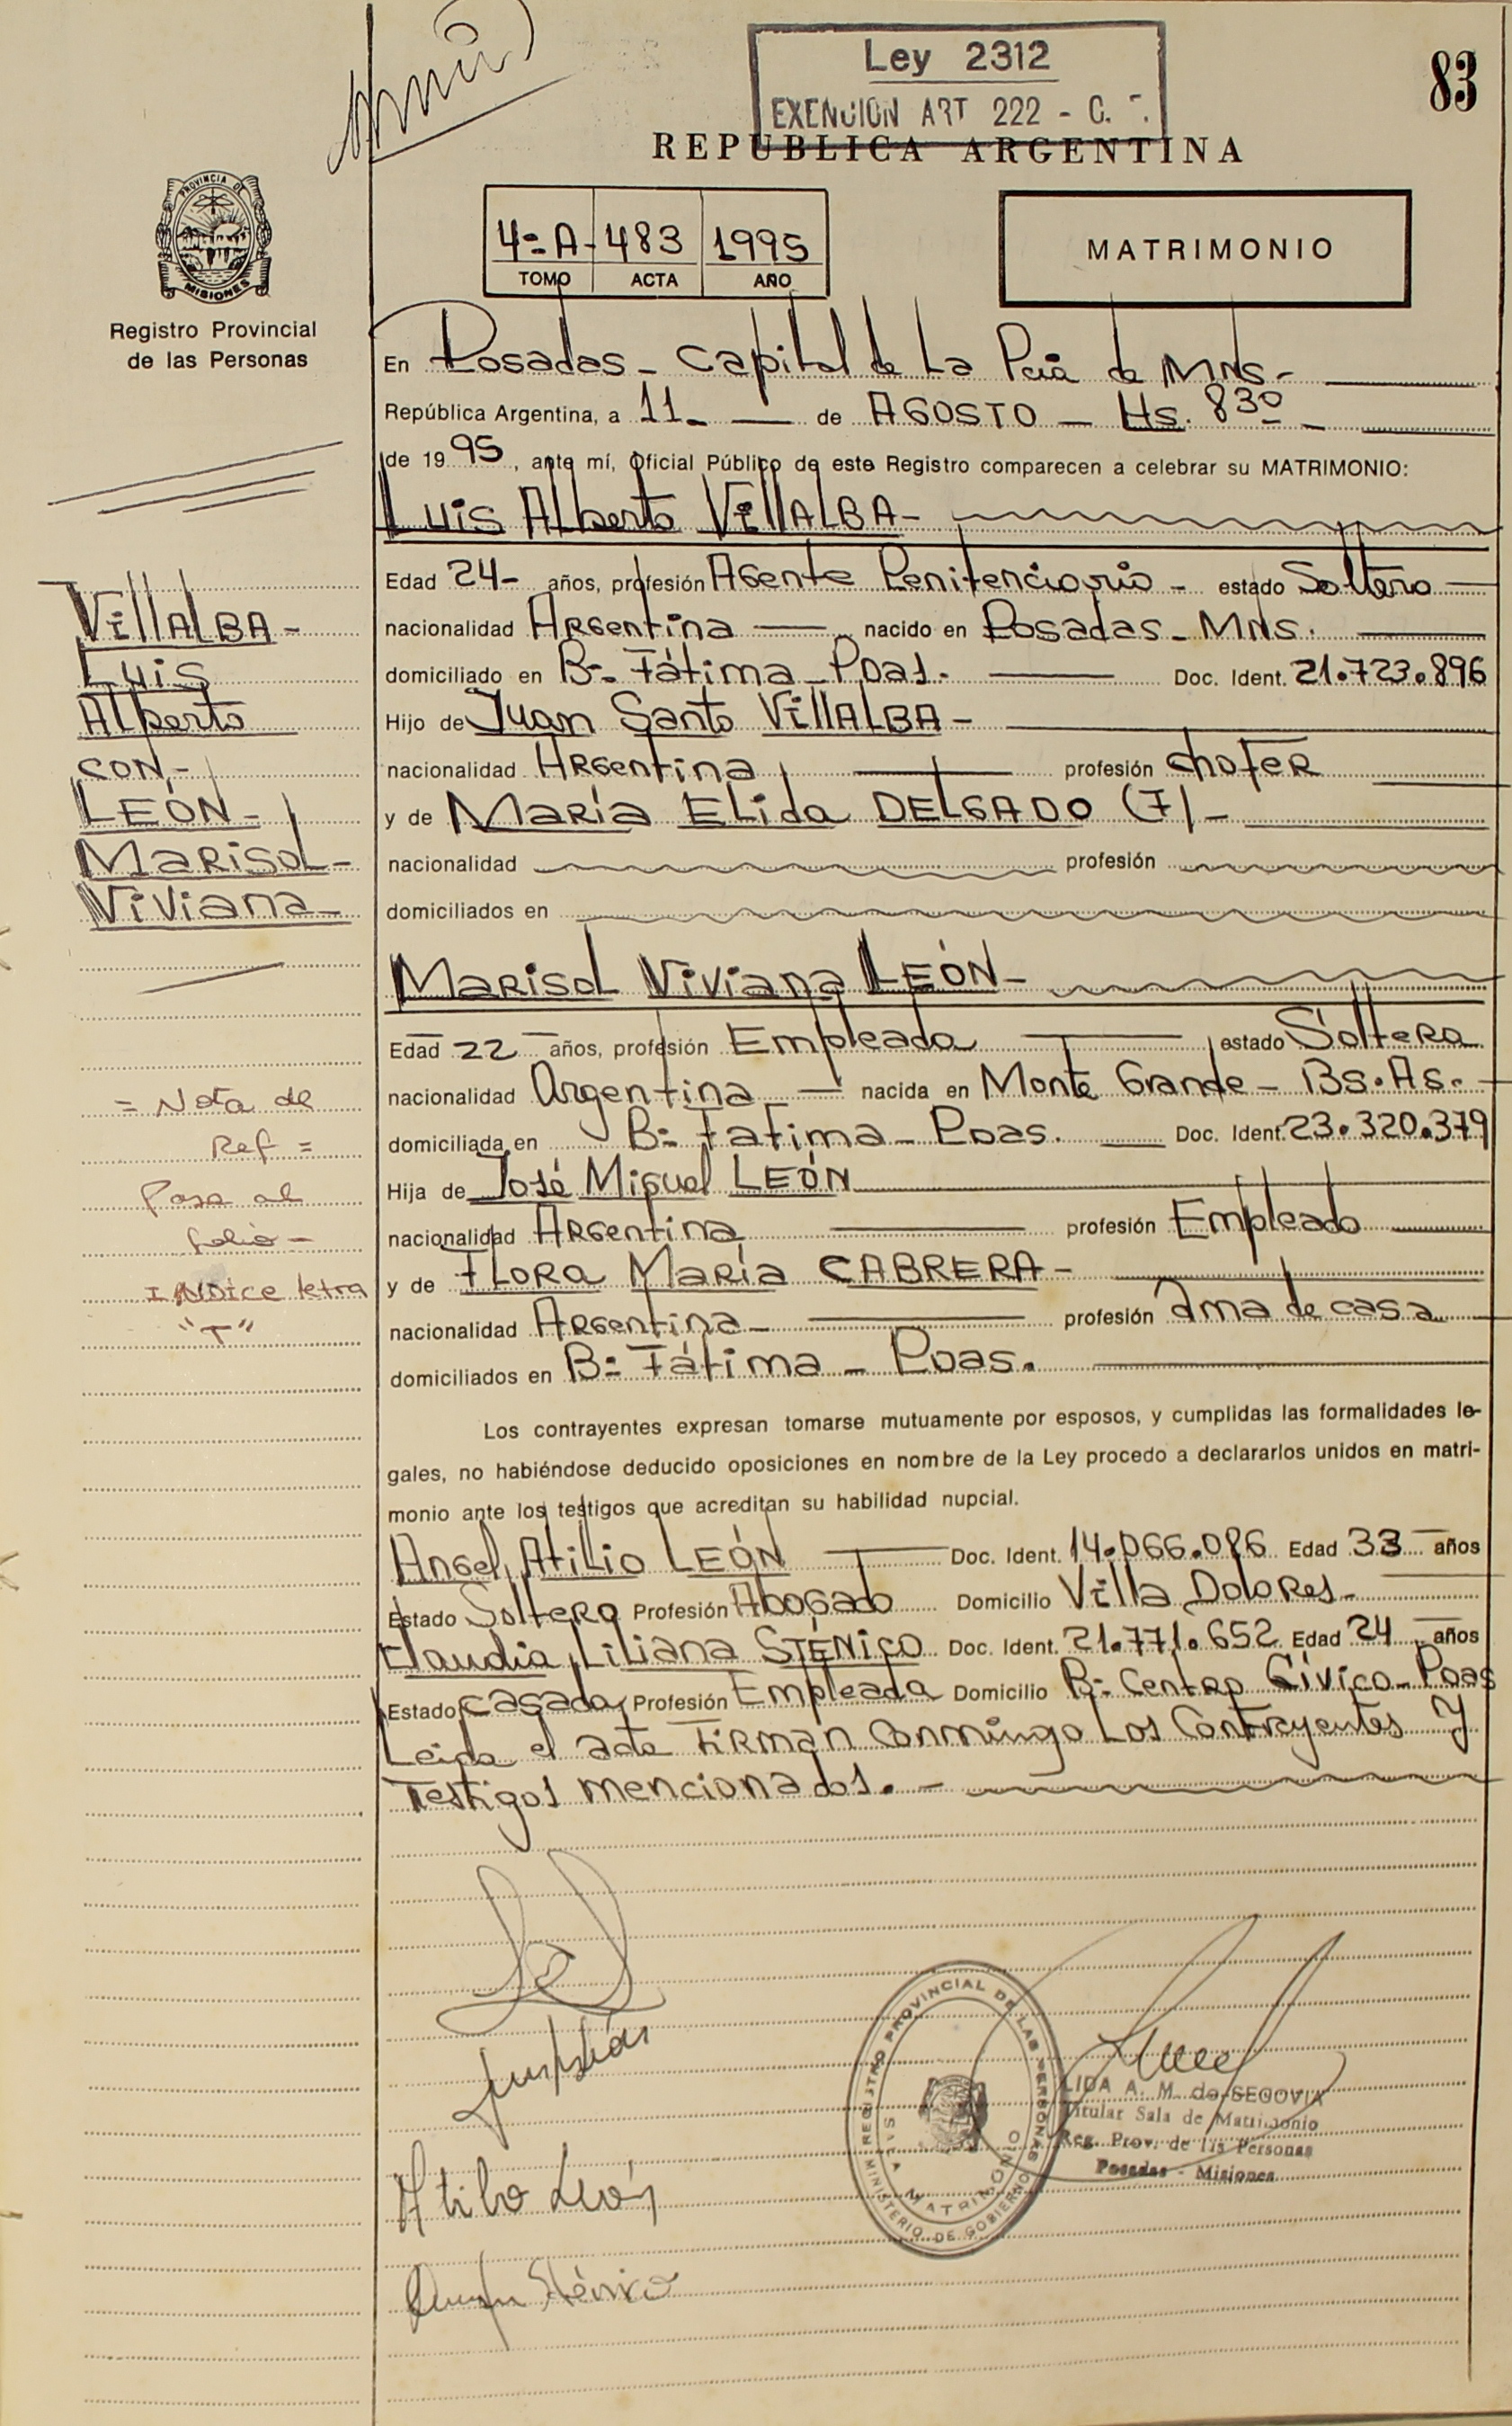 Ley 2312
EXENCION ART 222 - C.
83
REPUBLICA ARGENTINA
PROVINCIA DE
MISIONES
Registro Provincial
de las Personas
4º A - 483 1995
TOMO ACTA AÑO
MATRIMONIO
En Posadas - Capital de La Pcia de MNS -
República Argentina, a 11 - de AGOSTO - Hs. 8 30 -
de 1995, ante mí, Oficial Público de este Registro comparecen a celebrar su MATRIMONIO:
Luis Alberto VillALBA -
Edad 24 - años, profesión Agente Penitenciario - estado Soltero
nacionalidad Argentina nacido en Posadas - MNS.
domiciliado en Bº Fátima - Poas. Doc. Ident. 21.723.896
Hijo de Juan Santo VillALBA -
nacionalidad Argentina profesión chofer
y de María Elida DELGADO (F) -
nacionalidad profesión
domiciliados en
Marisol Viviana LEÓN -
Edad 22 años, profesión Empleada estado Soltera
nacionalidad Argentina nacida en Monte Grande - Bs. As. -
domiciliada en Bº Fatima - Poas. Doc. Ident. 23.320.379
Hija de José Miguel LEÓN
nacionalidad Argentina profesión Empleado
y de Flora María CABRERA -
nacionalidad Argentina - profesión ama de casa
domiciliados en Bº Fátima - Poas.
Los contrayentes expresan tomarse mutuamente por esposos, y cumplidas las formalidades le-
gales, no habiéndose deducido oposiciones en nombre de la Ley procedo a declararlos unidos en matri-
monio ante los testigos que acreditan su habilidad nupcial.
Angel Atilio LEÓN Doc. Ident. 14.066.086 Edad 33 años
Estado Soltero Profesión Abogado Domicilio Villa Dolores -
Claudia Liliana STÉNICO Doc. Ident. 21.771.652 Edad 24 años
Estado casada Profesión Empleada Domicilio Bº Centro Cívico - Poas
Leida el acta Firman conmingo Los Contrayentes y
Testigos mencionados. -
VillALBA -
Luis
Alberto
CON -
LEÓN -
Marisol -
Viviana -
= Nota de
Ref =
Pasa al
folio -
INDice letra
"T"
Atilio León
Sténico
REGISTRO PROVINCIAL DE LAS PERSONAS
MINISTERIO DE GOBIERNO
SALA MATRIMONIO
LIDA A. M. de SEGOVIA
Titular Sala de Matrimonio
Reg. Prov. de las Personas
Posadas - Misiones